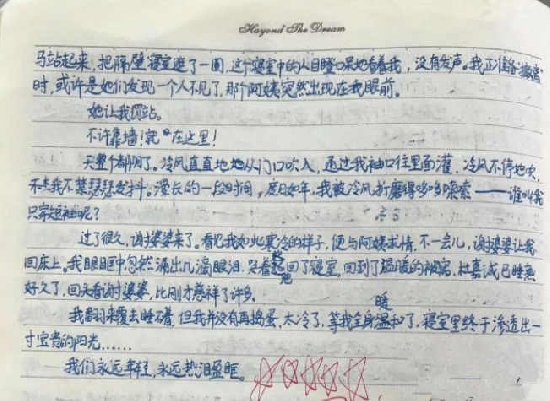 Hayond The Dream
马站起来，把隔壁寝室逛了一圈，这个寝室中的人目瞪口呆地看着我，没有发声。我正准备"撤离"
时，或许是她们发现一个人不见了，那个阿姨突然出现在我眼前。
她让我罚站。
不许靠墙！就在这里！
天整个都阴了。冷风直直地从门口吹入，透过我袖口往里面灌，冷风不停地吹，
我不禁瑟瑟发抖。漫长的一段时间，度日如年，我被冷风折磨得哆哆嗦嗦——谁叫我
只穿短袖呢？
过了很久，谢婆婆来了，看把我如此寒冷的样子，便与阿姨求情，不一会儿，谢婆婆让我
回床上。我眼眶中忽然涌出几滴眼泪，哭着跑回了寝室，回到了温暖的被窝，杜真诚已睡熟
好久了，回头看谢婆婆，比刚才慈祥了许多。
我翻来覆去睡不着，但我并没有再捣蛋，太冷了，等我全身温和了，寝室里终于渗透出一
寸宝贵的阳光……
我们永远年轻，永远热泪盈眶。